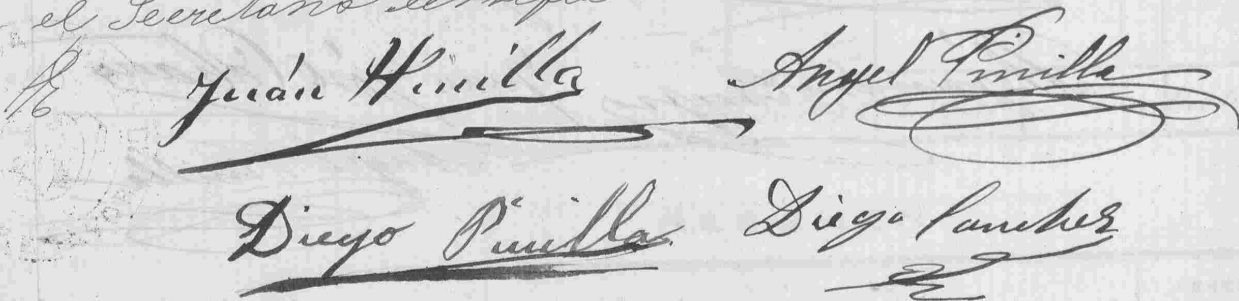 el Secretario certifico
Juán Hinilla Angel Pinilla
Diego Pinilla Diego Sanchez